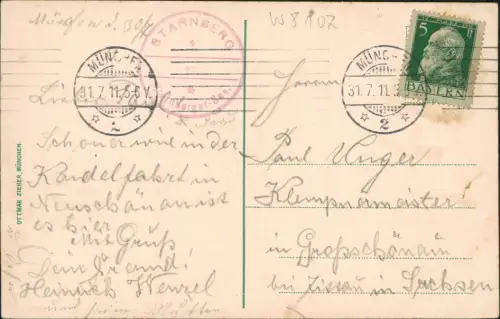 München d. 30/7
W8102
STARNBERG
MÜNCHEN
31.7.11. 5-6 V.
2
MÜNCHEN
31.7.11. 5
2
5
BAYERN
Schöner wie in der
Kandelfahrt in
Neuschönau ist
es hier
Mit Gruß
Dein Freund!
Heinrich Wenzel
Herrn
Paul Unger
Klempnermeister
in Großschönau
bei Zittau in Sachsen
OTTMAR ZIEHER, MÜNCHEN.